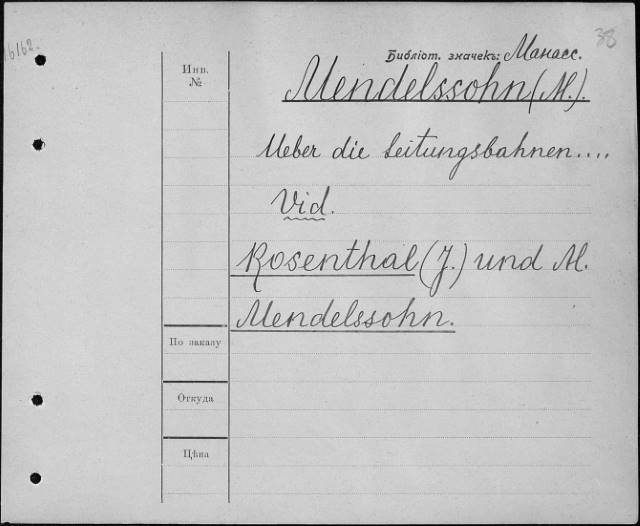 16162.
38
Библіот. значекъ: Манасс.
Инв.
№
Mendelssohn (M.).
Ueber die Leitungsbahnen....
Vid.
Rosenthal (J.) und M.
Mendelssohn.
По заказу
Откуда
Цѣна